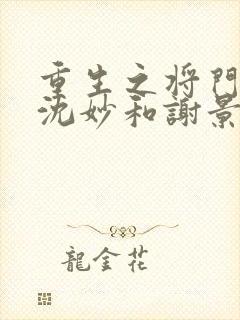 重生之将門
沈妙和謝景
龍金花